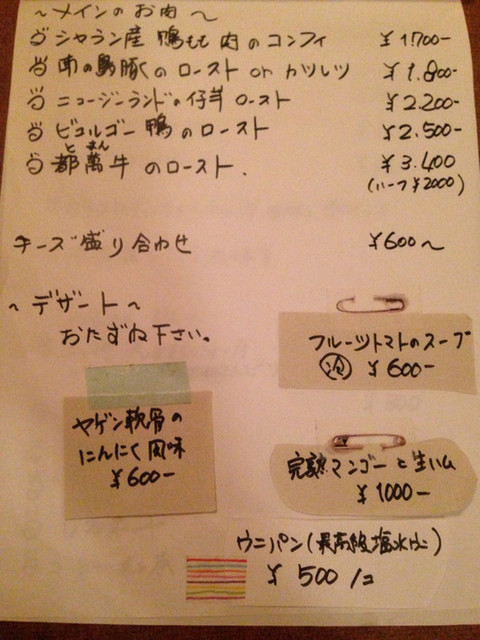 〜メインのお肉〜
シャラン産 鴨もも肉のコンフィ ¥1700-
南の島豚のロースト or カツレツ ¥1.800-
ニュージーランドの仔羊 ロースト ¥2.200-
ビゴルゴー鴨のロースト ¥2.500-
とまん
都萬牛のロースト. ¥3.400
(ハーフ¥2000)
チーズ盛り合わせ ¥600〜
〜デザート〜
おたずね下さい。
フルーツトマトのスープ
冷 ¥600-
ヤゲン軟骨の
にんにく風味
¥600-
完熟マンゴーと生ハム
¥1000-
ウニパン(最高級塩水ウニ)
¥500/コ